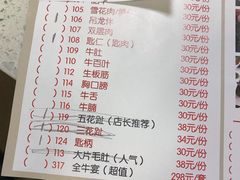 105 雪花肉 30元/份
106 吊龙伴 30元/份
107 双层肉 30元/份
108 匙仁（匙肉） 30元/份
109 牛肚 30元/份
110 牛百叶 30元/份
112 生板筋 30元/份
114 胸口膀 30元/份
115 牛舌 30元/份
116 牛腩 30元/份
119 五花趾（店长推荐） 38元/份
120 三花趾 34元/份
124 匙柄 34元/份
113 大片毛肚（人气） 38元/份
317 全牛宴（超值） 298元/套